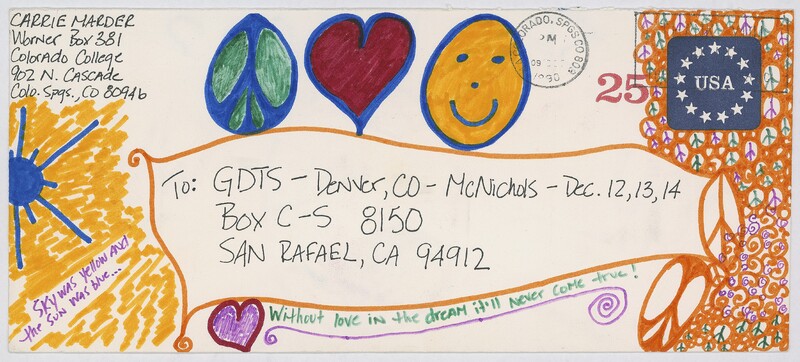 CARRIE MARDER
Worner Box 381
Colorado College
902 N. Cascade
Colo. Spgs., CO 80946
COLORADO. SPGS CO 809
PM
1990
25
USA
To: GDTS - Denver, CO - McNichols - Dec. 12, 13, 14
Box C-S 8150
SAN RAFAEL, CA 94912
SKY was yellow and
the sun was blue...
Without love in the dream it'll never come true!